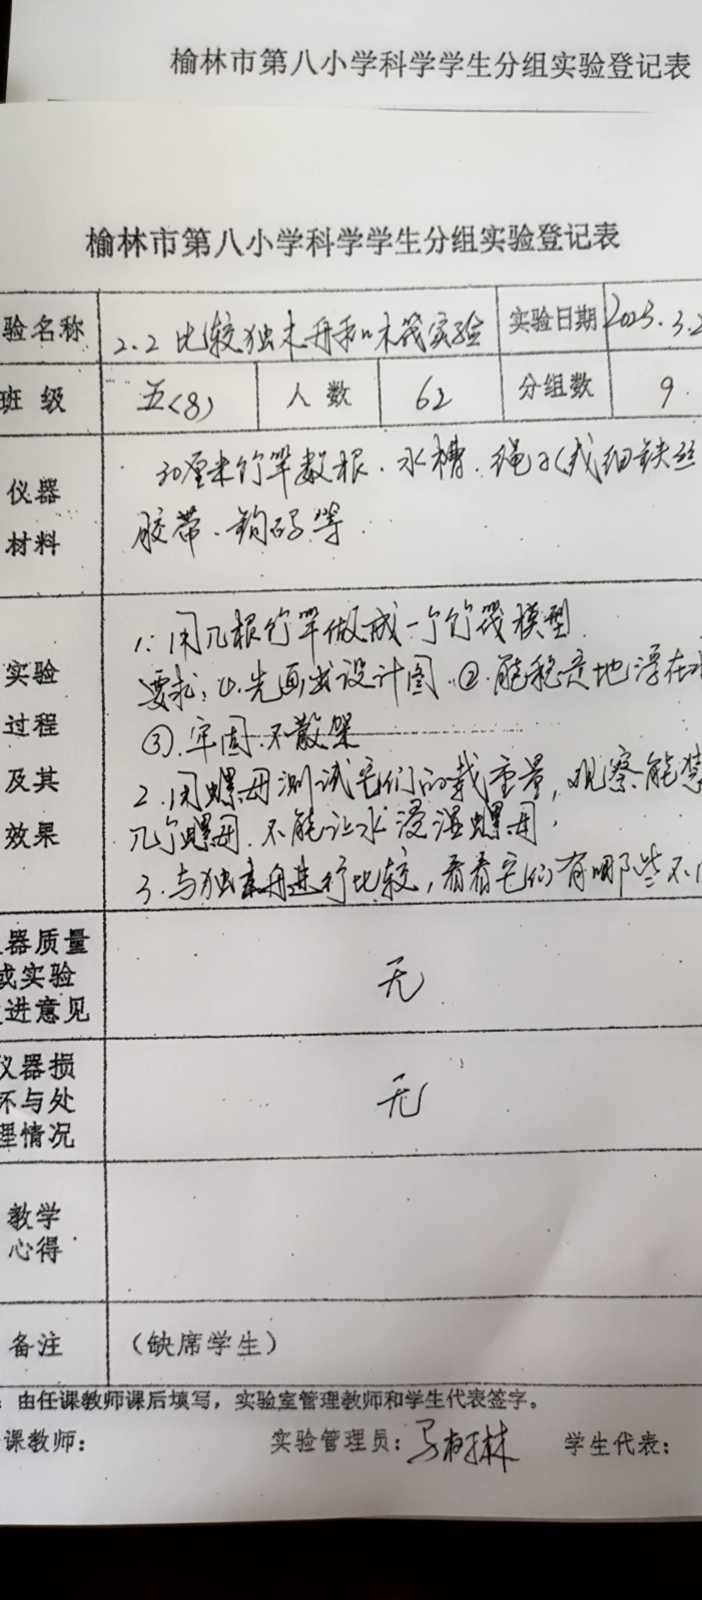 榆林市第八小学科学学生分组实验登记表
榆林市第八小学科学学生分组实验登记表
验名称 2.2 比较独木舟和木筏实验 实验日期 2023.3.2
班 级 五(8) 人 数 62 分组数 9
仪器
材料
30厘米竹竿数根、水槽、绳子(或细铁丝
胶带、钩码等
实验
过程
及其
效果
1: 用几根竹竿做成一个竹筏模型
要求: ①.先画出设计图 ②.能稳定地浮在水
③.牢固.不散架
2.用螺母测试它们的载重量,观察能禁
几个螺母.不能让水浸湿螺母.
3.与独木舟进行比较,看看它们有哪些不
器质量
或实验
进意见
无
仪器损
坏与处
理情况
无
教学
心得
备注 (缺席学生)
:由任课教师课后填写,实验室管理教师和学生代表签字。
课教师: 实验管理员: 学生代表: